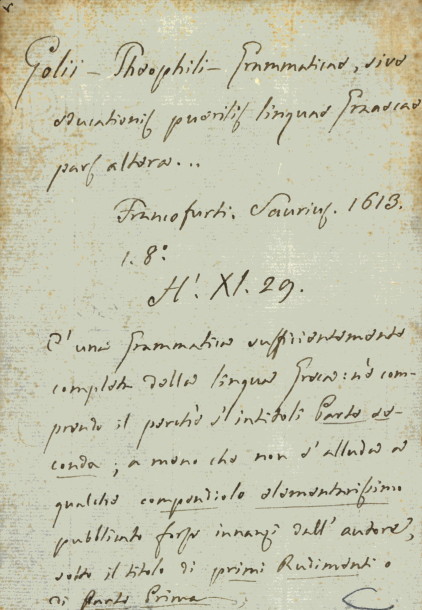 Golii - Theophili - Grammaticae, sive
educationis puerilis linguae Graecae
pars altera...
Francofurti. Saurius. 1613.
1. 8º
H'. XI. 29.
E' una Grammatica sufficientemente
completa della lingua Greca: nè com-
prendo il perchè s'intitoli Parte se-
conda; a meno che non s'alluda a
qualche compendiolo elementarissimo
pubblicato forse innanzi dall'autore,
sotto il titolo di primi Rudimenti o
di Parte Prima